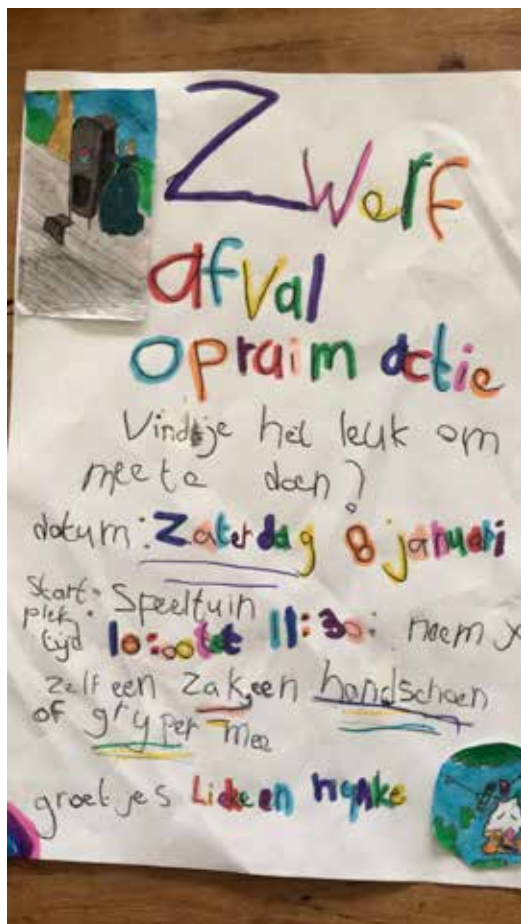 Zwerf
afval
opraim actie
Vindtje het leuk om
mee te doen?
datum: Zaterdag 8 januari
Start: Speeltuin
plek
tijd 10:00 tot 11:30: neem je
zelf een zak, een handschoen
of gryper mee
groetjes Lieke en